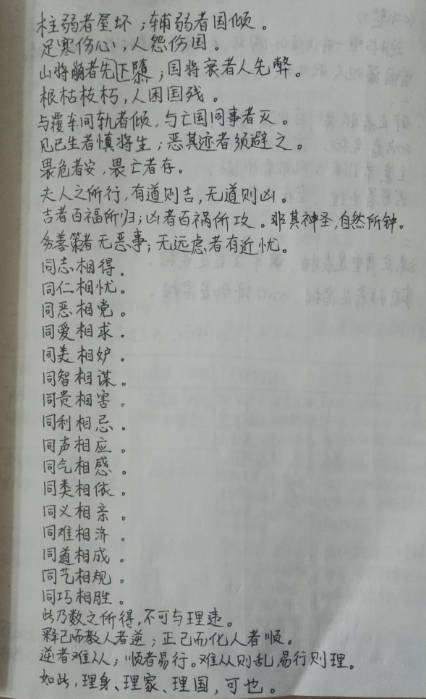 柱弱者屋坏；辅弱者国倾。
足寒伤心；人怨伤国。
山将崩者先下隳；国将衰者人先弊。
根枯枝朽，人困国残。
与覆车同轨者倾，与亡国同事者灭。
见已生者慎将生；恶其迹者须避之。
畏危者安，畏亡者存。
夫人之所行，有道则吉，无道则凶。
吉者百福所归；凶者百祸所攻。非其神圣，自然所钟。
务善策者无恶事；无远虑者有近忧。
同志相得。
同仁相忧。
同恶相党。
同爱相求。
同美相妒。
同智相谋。
同贵相害。
同利相忌。
同声相应。
同气相感。
同类相依。
同义相亲。
同难相济。
同道相成。
同艺相规。
同巧相胜。
此乃数之所得，不可与理违。
释己而教人者逆；正己而化人者顺。
逆者难从；顺者易行。难从则乱，易行则理。
如此，理身、理家、理国，可也。